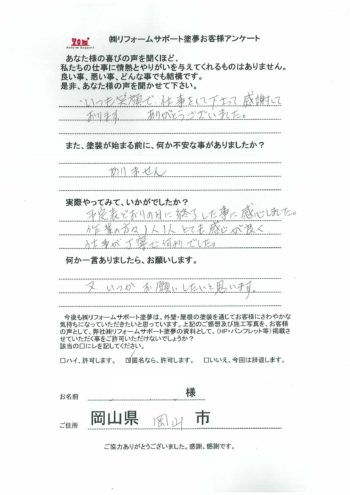 ㈱リフォームサポート塗夢お客様アンケート
あなた様の喜びの声を聞くほど、
私たちの仕事に情熱とやりがいを与えてくれるものはありません。
良い事、悪い事、どんな事でも結構です。
是非、あなた様の声を聞かせて下さい。
いつも笑顔で、仕事をして下さって感謝して
おります ありがとうございました。
また、塗装が始まる前に、何か不安な事がありましたか?
ありません
実際やってみて、いかがでしたか?
予定表どおりの日に終了した事に感心しました。
作業の方々1人1人とても感じが良く
仕事が丁寧で何よりでした。
何か一言ありましたら、お願いします。
又いつかお願いしたいと思います。
今後も㈱リフォームサポート塗夢は、外壁・屋根の塗装を通じてお客様にさわやかな
気持ちになっていただきたいと思っています。上記のご感想及び施工写真を、お客様
の声として、弊社㈱リフォームサポート塗夢の資料として、(HP・パンフレット等)掲載さ
せていただく事をご許可いただけないでしょうか?
該当の□にレを記してください。
□ハイ、許可します。 ☑匿名なら、許可します。 □いいえ、今回は辞退します。
お名前 様
ご住所 岡山県 岡山 市
ご協力ありがとうございました。感謝、感謝です。